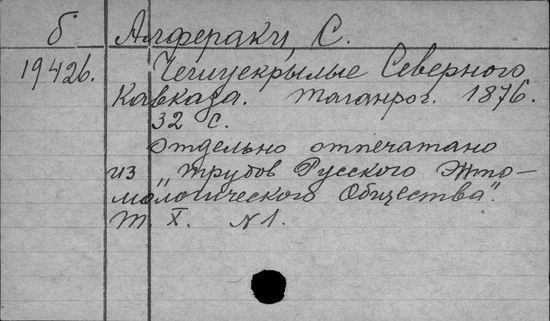 б Алфераки, С.
19426. Чешуекрылые Северного
Кавказа. Таганрог. 1876.
32 с.
Отдельно отпечатано
из „Трудов Русского Энто-
мологического Общества".
Т. X. №1.